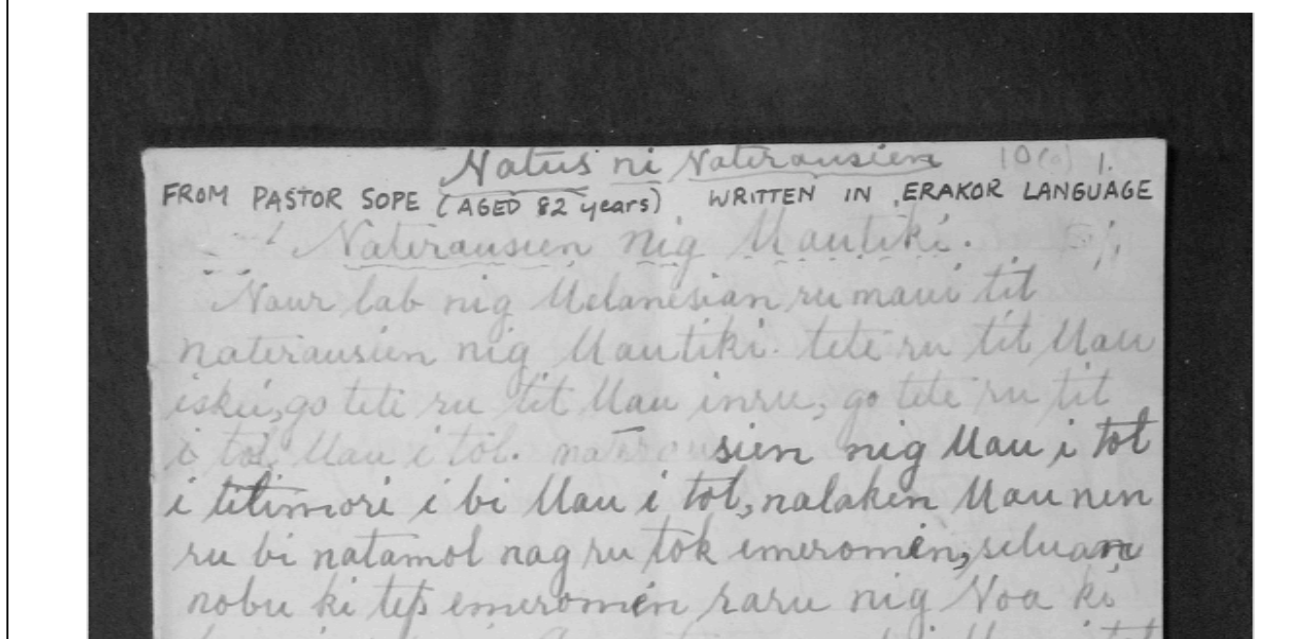 Natus ni Naterausien 10(a) 1.
FROM PASTOR SOPE (AGED 82 years), WRITTEN IN ERAKOR LANGUAGE
Naterausien nig Mautiki.
Naur lab nig Melanesian ru maui tit
naterausien nig Mautiki. tete ru tit Mau
iskei, go tete ru tit Mau inru, go tete ru tit
i tol Mau i tol. naterausien nig Mau i tol
i titimori i bi Mau i tol, nalaken Mau nen
ru bi natamol nag ru tok emeromen, seluan
nobu ki tep emeromen raru nig Noa ki